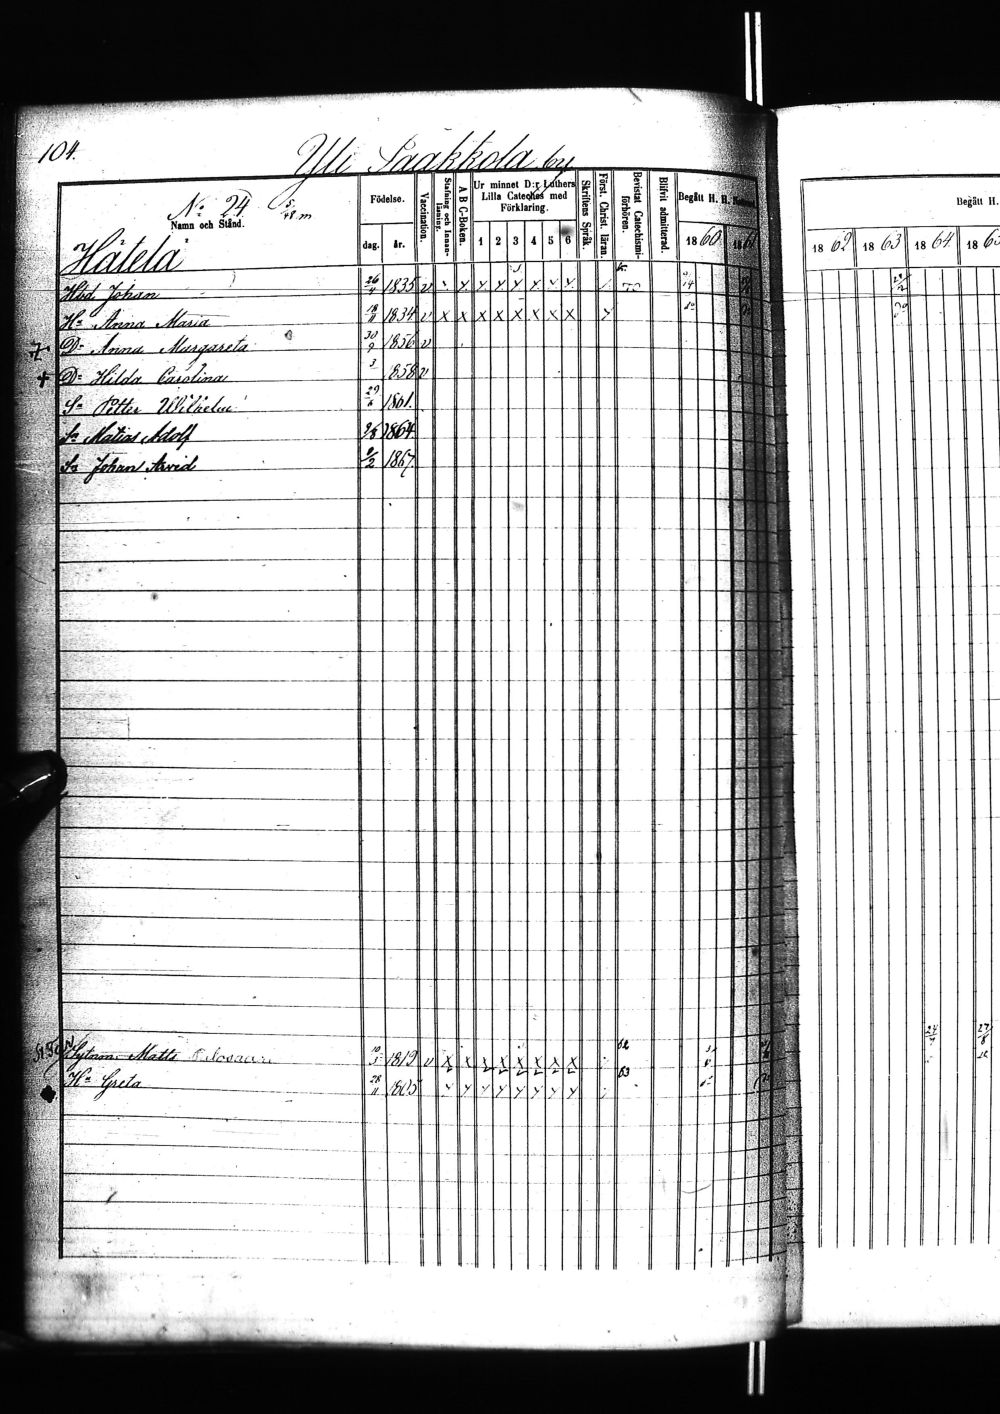 104.
Yli Saakkola by
No 24. 5/48 m
Namn och Stånd.
Födelse.
dag.
år.
Vaccination.
Stafning och Innanläsning.
A B C-Boken.
Ur minnet D:r Luthers Lilla Cateches med Förklaring.
1 2 3 4 5 6
Skriftens Språk.
Först. Christ. läran.
Bevistat Catechismi-förhören.
Blifvit admitterad.
Begått H. H.
1860
1861
Begått H.
1862 1863 1864 1865
Hätelä
Hbd Johan 26/4 1835 v
Hu Anna Maria 18/11 1834 v x x x x x x x x
Dr Anna Margareta 30/9 1856 v
+ Dr Hilda Carolina 3 858 v
Sn Petter Wilhelm 29/6 1861.
Sn Matias Adolf 1864
Sn Johan Arvid 9/2 1867.
Sytnm. Matts 10/5 1819 v x x x x x x x x 62
Hu Greta 28/11 1805 63